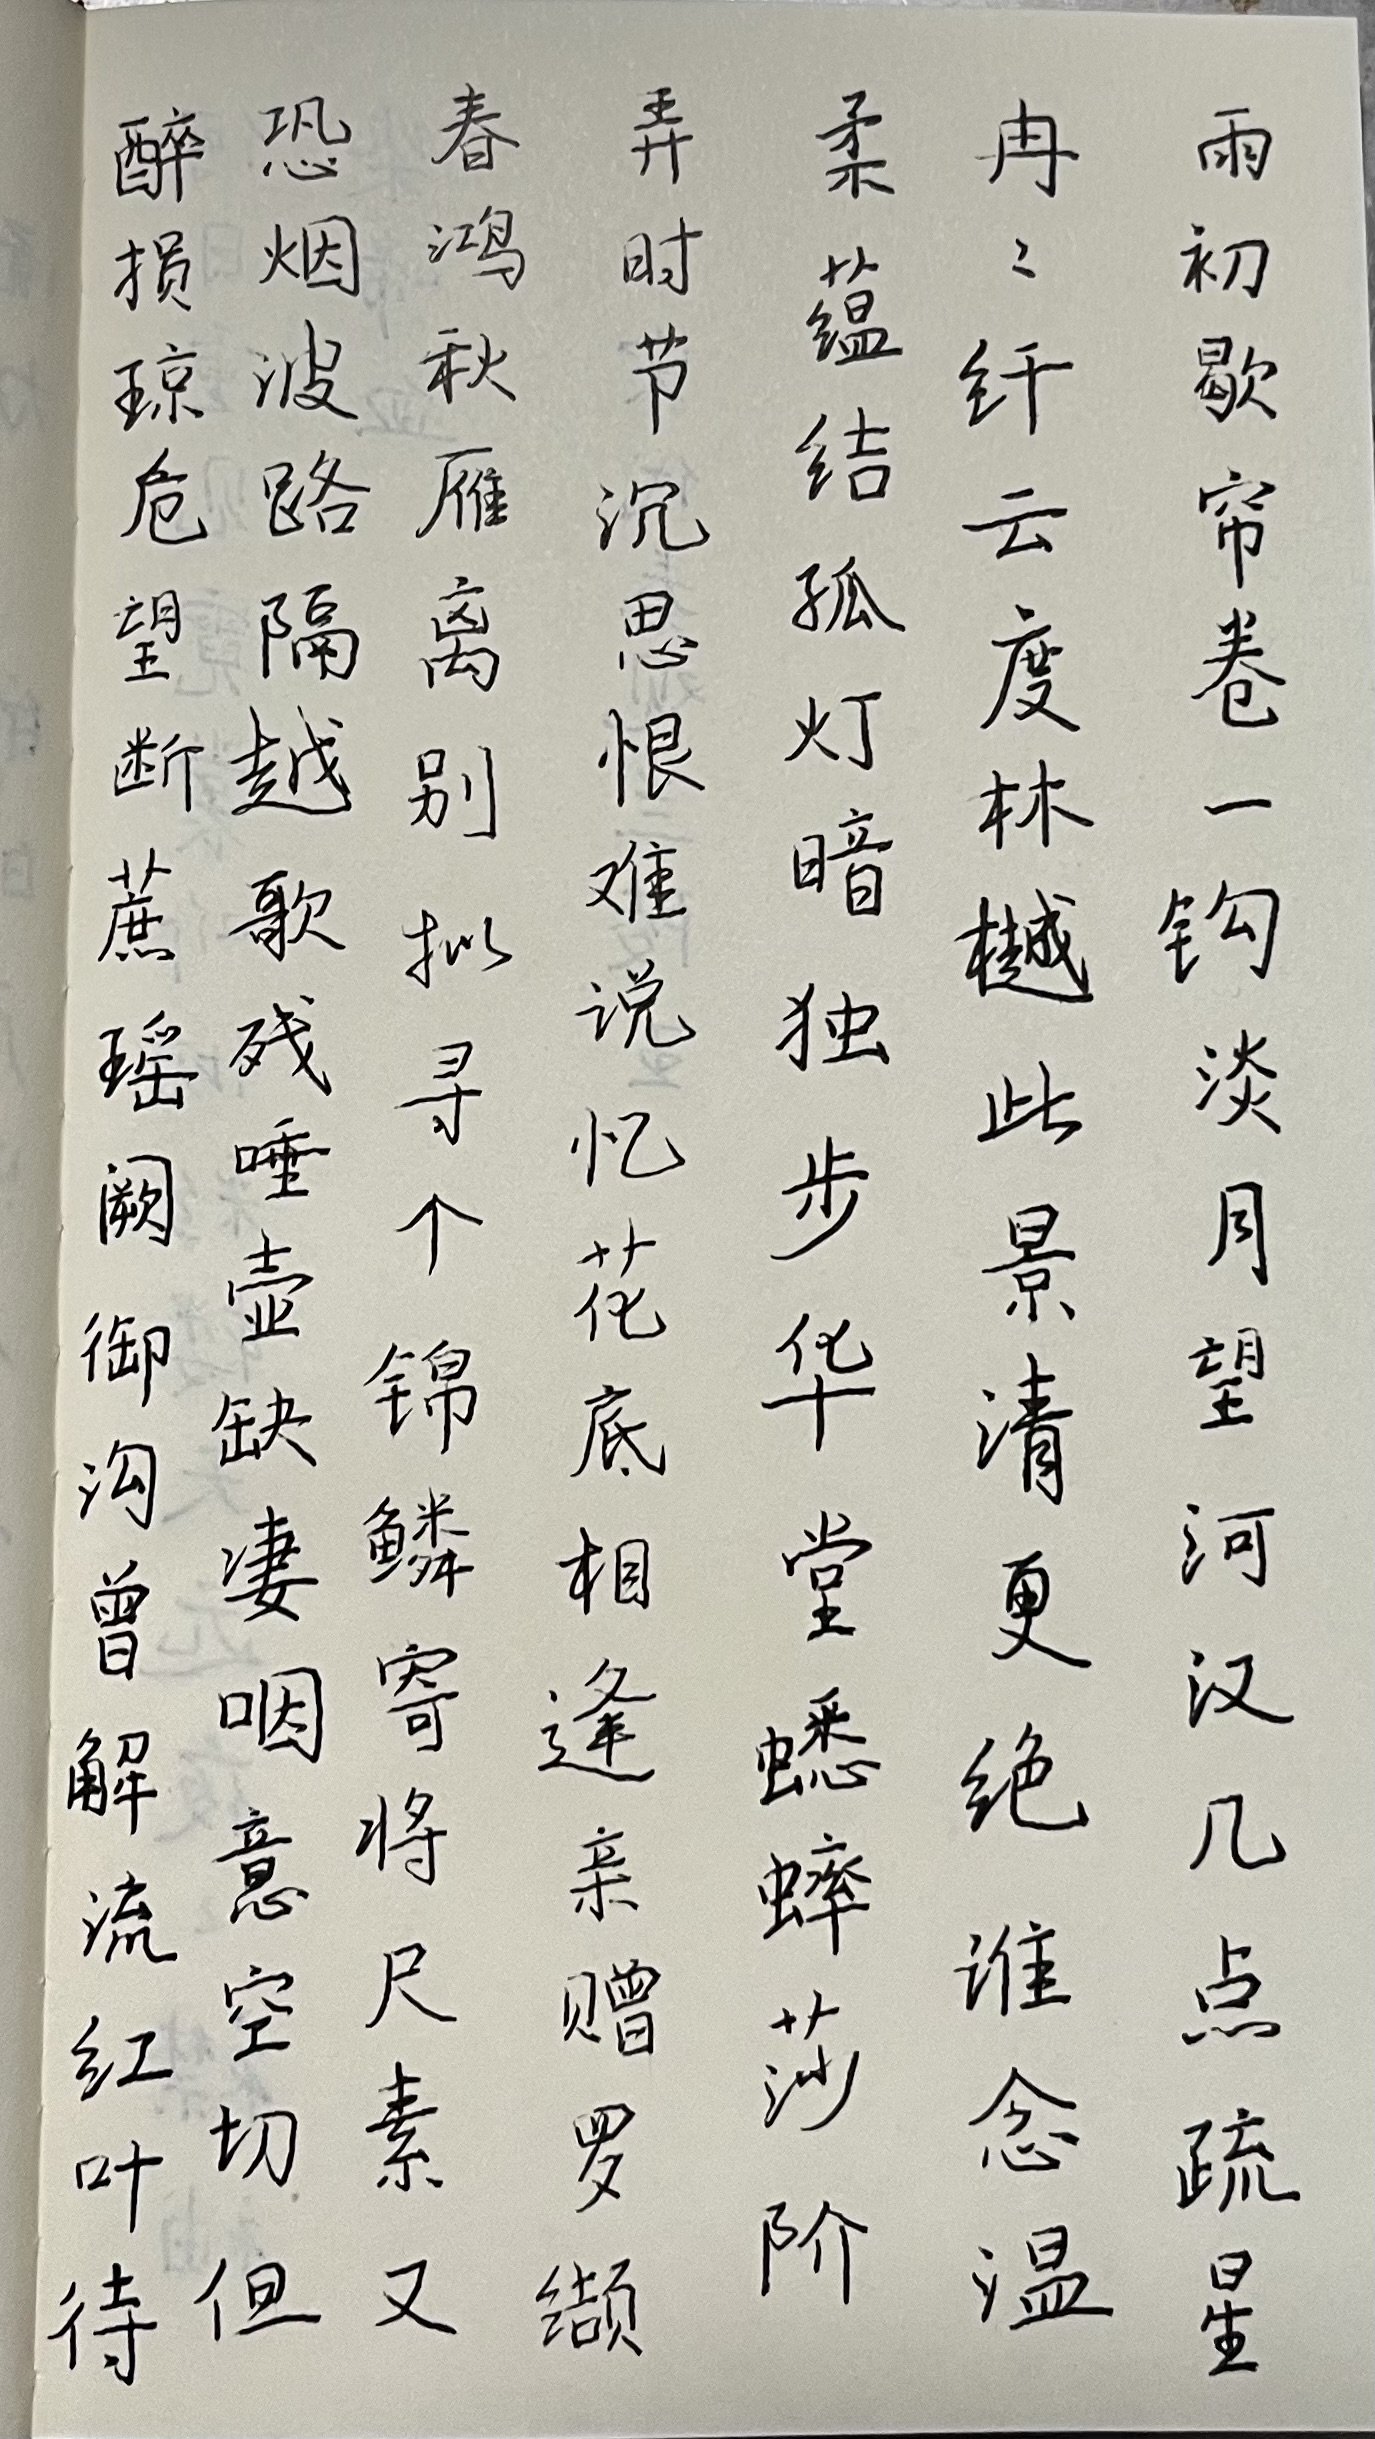 雨初歇帘卷一钩淡月望河汉几点疏星
冉〻纤云度林樾此景清更绝谁念温
柔蕴结孤灯暗独步华堂蟋蟀莎阶
弄时节沉思恨难说忆花底相逢亲赠罗缬
春鸿秋雁离别拟寻个锦鳞寄将尺素又
恐烟波路隔越歌残唾壶缺凄咽意空切但
醉损琼卮望断蔗瑶阙御沟曾解流红叶待